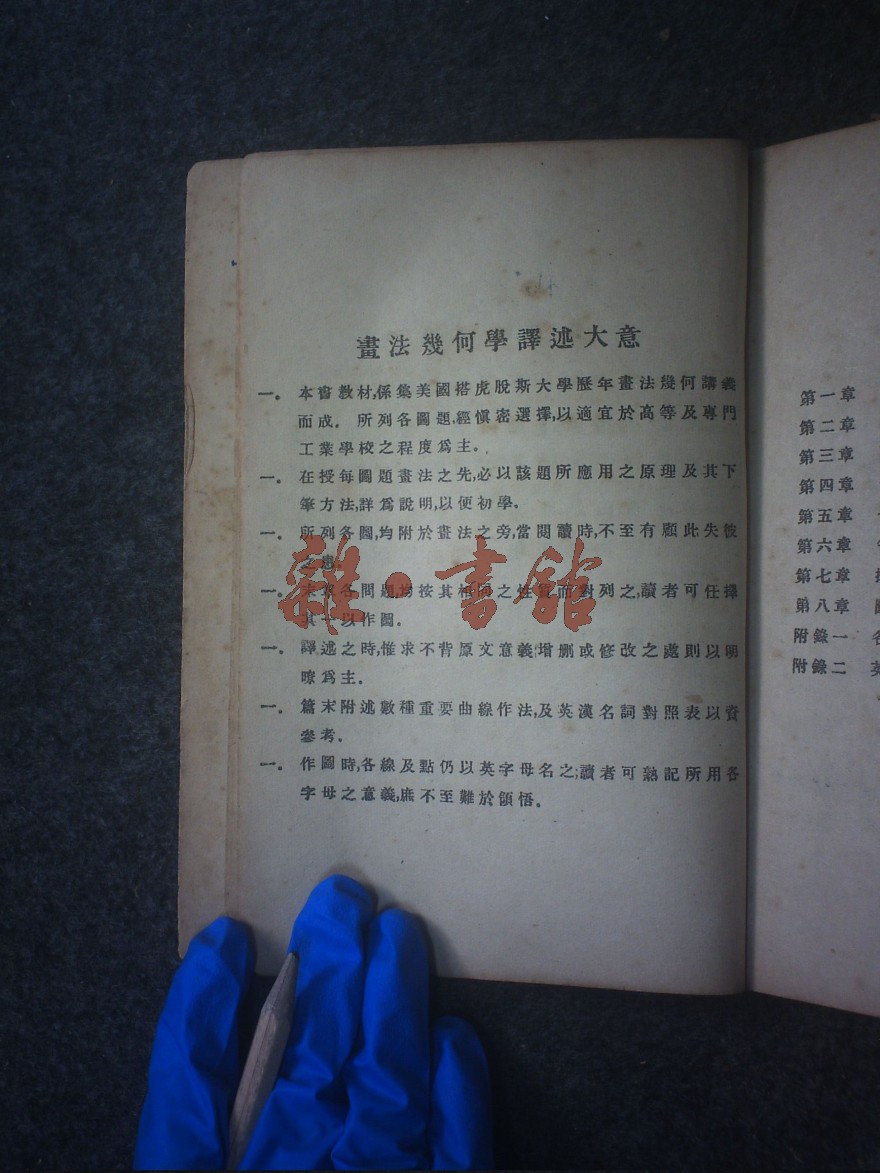 畫法幾何學譯述大意
一。 本書教材,係集美國搭虎股斯大學歷年畫法幾何講義
而成。所列各圖題,經慎密選擇,以適宜於高等及專門
工業學校之程度爲主。
一。 在授每圖題畫法之先,必以該題所應用之原理及其下
筆方法,詳爲說明,以便初學。
一。 所列各圖,均附於畫法之旁,當閱讀時,不至有顧此失彼
之患。
一。 末章各問題,均按其相同之性質而對列之,讀者可任擇
其一以作圖。
一。 譯述之時,惟求不背原文意義;增删或修改之處則以明
暸爲主。
一。 篇末附述數種重要曲線作法,及英漢名詞對照表以資
參考。
一。 作圖時,各線及點仍以英字母名之;讀者可熟記所用各
字母之意義,庶不至難於領悟。
雜·書館
第一章
第二章
第三章
第四章
第五章
第六章
第七章
第八章
附錄一
附錄二